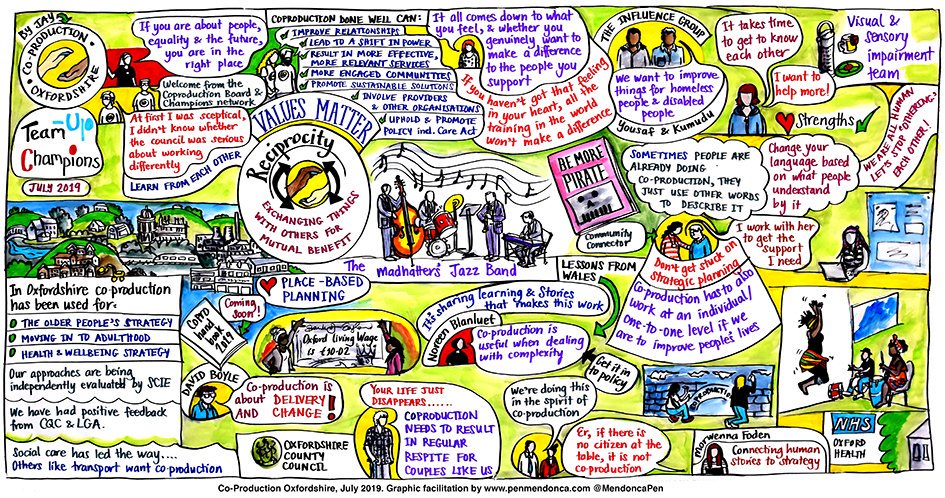 By JAY
CO-PRODUCTION
OXFORDSHIRE
If you are about people,
equality & the future,
you are in the
right place
Welcome from the
Coproduction Board &
Champions network
Team-Up
Champions
JULY 2019
At first I was sceptical,
I didn't know whether
the council was serious
about working
differently
LEARN FROM EACH OTHER
COPRODUCTION DONE WELL CAN:
IMPROVE RELATIONSHIPS
LEAD TO A SHIFT IN POWER
RESULT IN MORE EFFECTIVE,
MORE RELEVANT SERVICES
MORE ENGAGED COMMUNITIES
PROMOTE SUSTAINABLE SOLUTIONS
INVOLVE PROVIDERS
& OTHER ORGANISATIONS
UPHOLD & PROMOTE
POLICY incl. Care Act
VALUES MATTER
Reciprocity
EXCHANGING THINGS
WITH OTHERS FOR
MUTUAL BENEFIT
It all comes down to what
you feel, & whether you
genuinely want to
make a difference
to the people you
support
If you haven't got that feeling
in your heart, all the
training in the world
won't make a difference
THE INFLUENCE GROUP
We want to improve
things for homeless
people & disabled
people
Yousaf & Kumudu
It takes time
to get to know
each other
I want to
help more!
Strengths
Visual &
sensory
impairment
team
WE ARE ALL HUMAN
LET'S STOP 'OTHERING'
EACH OTHER!
BE MORE
PIRATE
SOMETIMES PEOPLE ARE
ALREADY DOING
CO-PRODUCTION, THEY
JUST USE OTHER WORDS
TO DESCRIBE IT
Change your
language based
on what people
understand
by it
Community
Connector
I work with her
to get the
support
I need
The Madhatters' Jazz Band
PLACE-BASED
PLANNING
LESSONS FROM
WALES
Don't get stuck on
strategic planning
Co-production has to also
work at an individual/
one-to-one level if we
are to improve people's lives
In Oxfordshire co-production
has been used for:
THE OLDER PEOPLE'S STRATEGY
MOVING IN TO ADULTHOOD
HEALTH & WELLBEING STRATEGY
Our approaches are being
independently evaluated by SCIE
We have had positive feedback
from CQC & LGA.
Social care has led the way....
Others like transport want co-production
Coming
soon!
COPRO
hand
book
2019
Oxford Living Wage
is £10.02
It's sharing learning & Stories
that makes this work
Noreen Blanluet
Co-production is
useful when dealing
with complexity
Get it in
to policy
DAVID BOYLE
Co-production is
about DELIVERY
AND CHANGE!
OXFORDSHIRE
COUNTY
COUNCIL
YOUR LIFE JUST
DISAPPEARS.....
COPRODUCTION
NEEDS TO RESULT
IN REGULAR
RESPITE FOR
COUPLES LIKE US
We're doing this
in the spirit of
co-production
Er, if there is
no citizen at the
table, it is not
co-production
Marwenna Foden
Connecting human
stories to strategy
NHS
OXFORD
HEALTH
Co-Production Oxfordshire, July 2019. Graphic facilitation by www.penmendonca.com @MendoncaPen